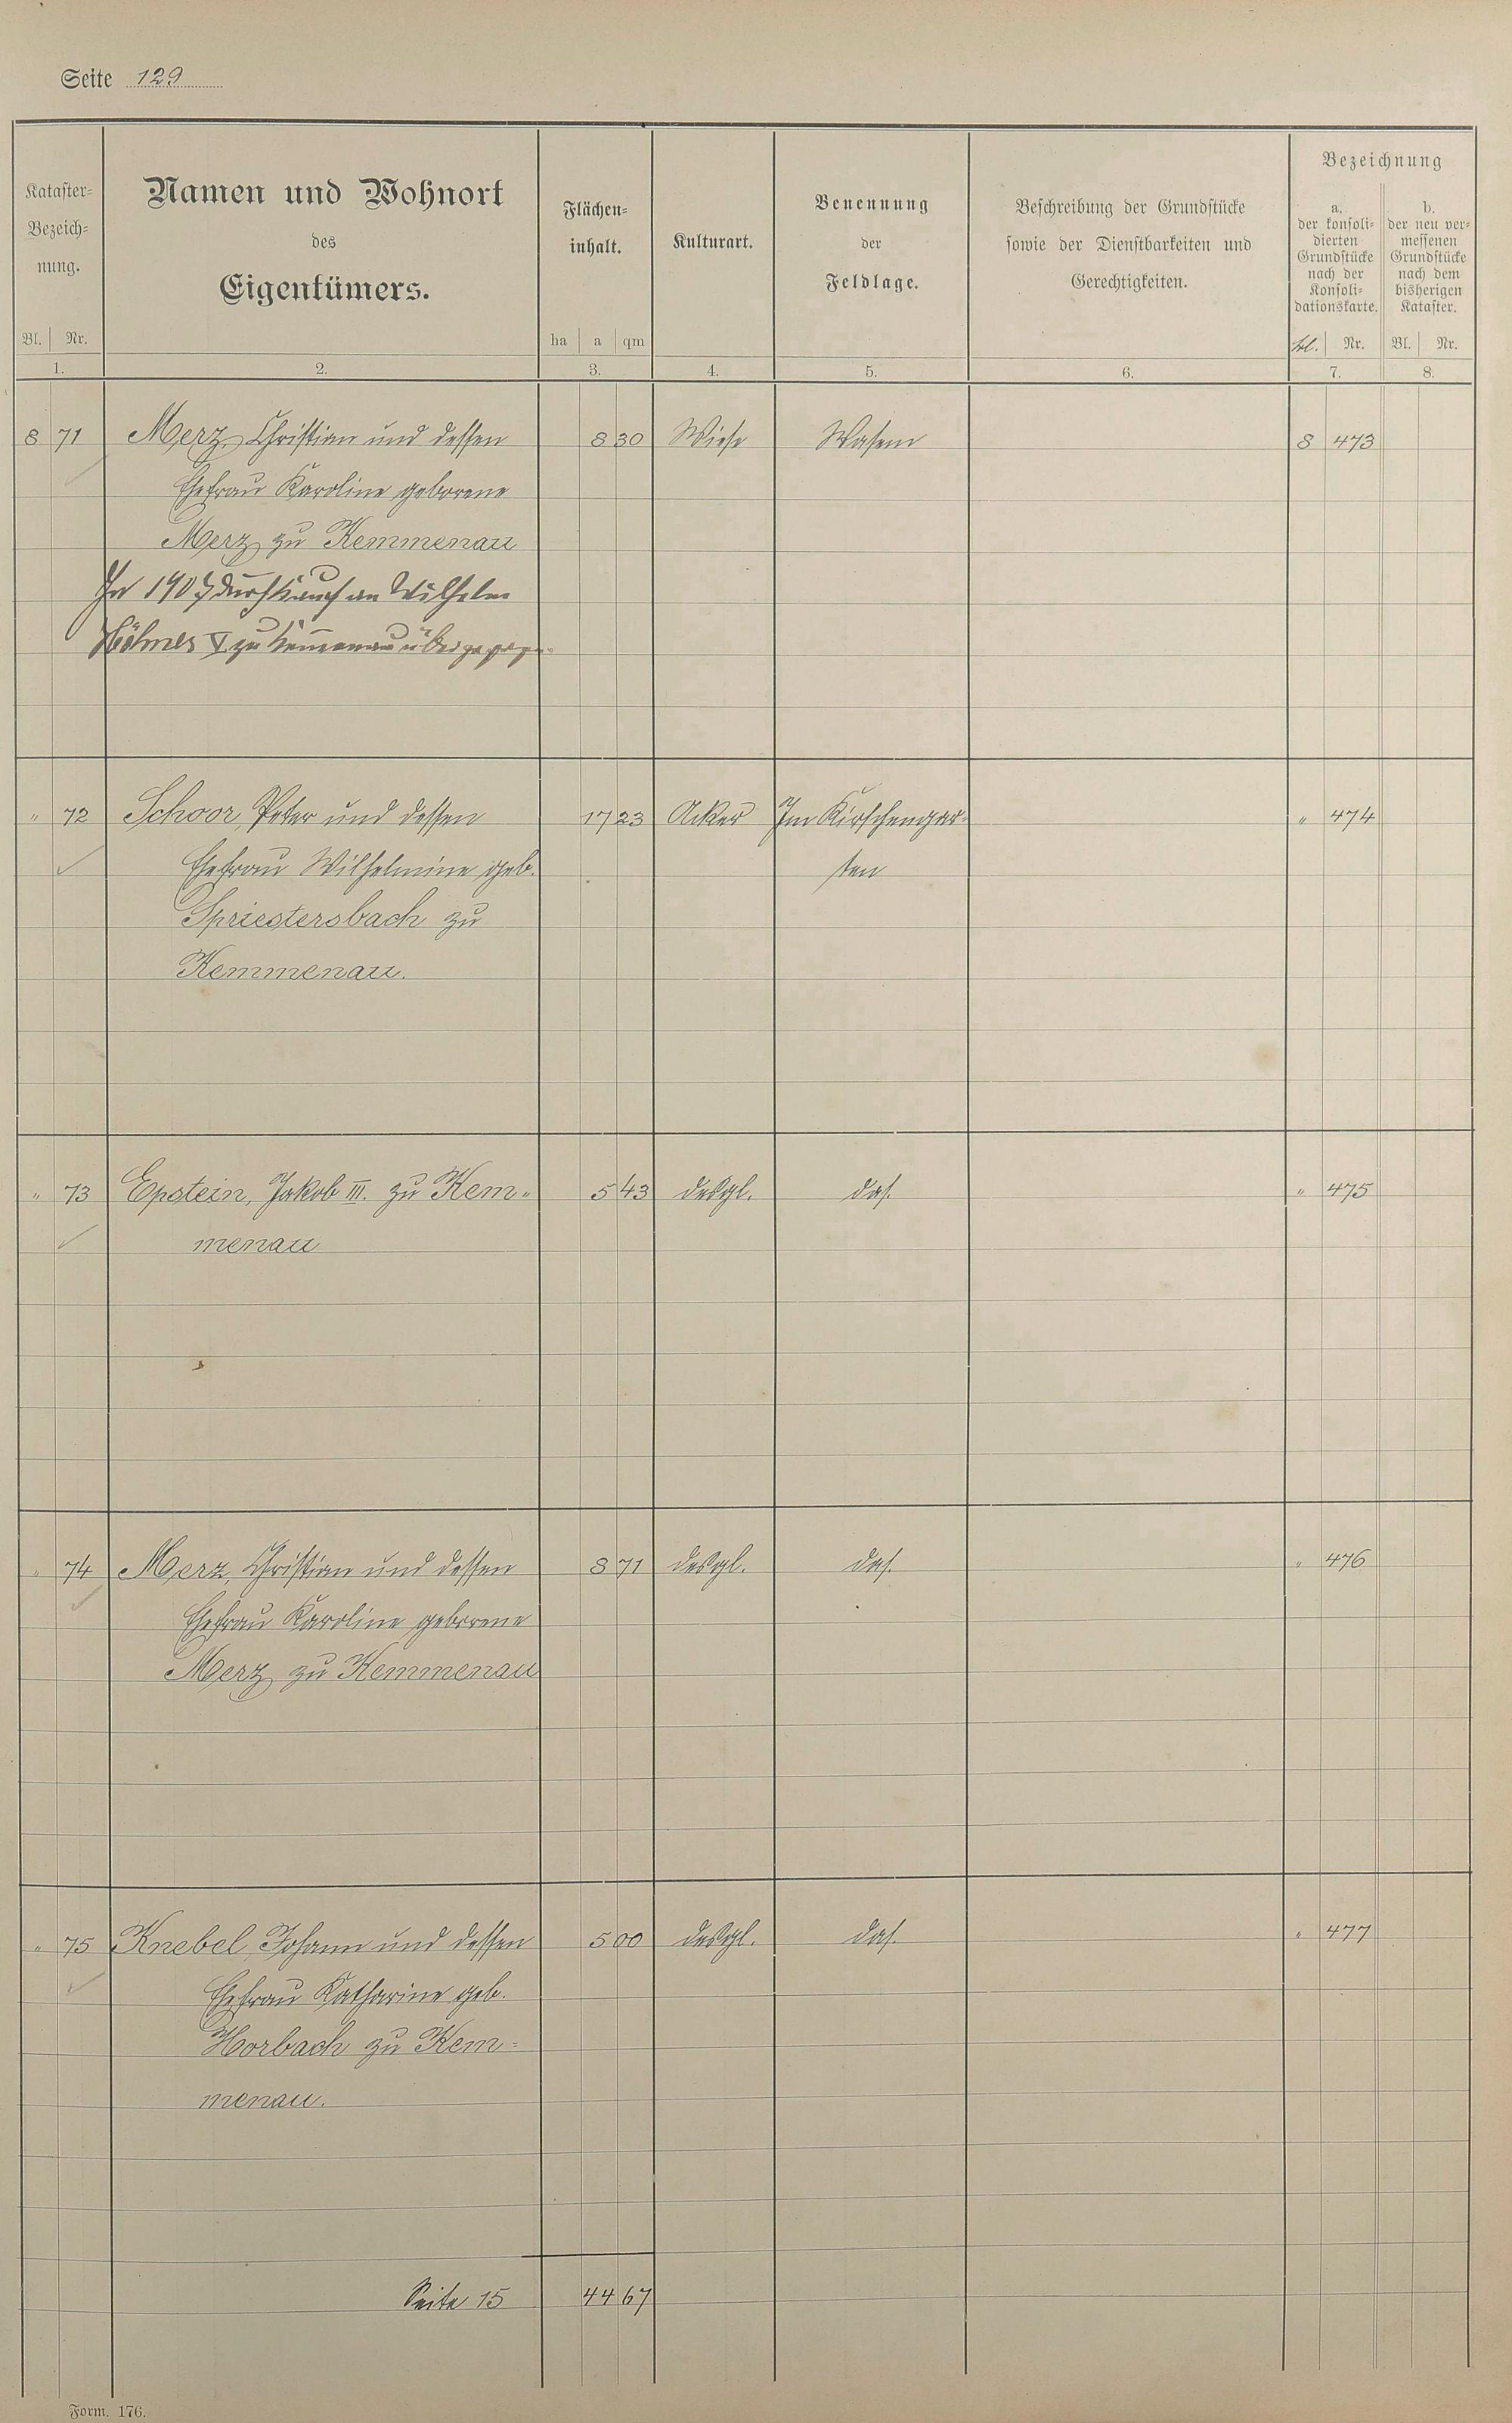 Seite 129
Kataster-
Bezeich-
nung.
Bl. Nr.
1.
Namen und Wohnort
des
Eigentümers.
2.
Flächen-
inhalt.
ha a qm
3.
Kulturart.
4.
Benennung
der
Feldlage.
5.
Beschreibung der Grundstücke
sowie der Dienstbarkeiten und
Gerechtigkeiten.
6.
Bezeichnung
a.
der konsoli-
dierten
Grundstücke
nach der
Konsoli-
dationskarte.
Bl. Nr.
7.
b.
der neu ver-
messenen
Grundstücke
nach dem
bisherigen
Kataster.
Bl. Nr.
8.
8 71 Merz, Christian und dessen 8 30 Wiese Wasem 8 473
Ehefrau Karoline geborene
Merz zu Kemmenau
In 1907 durch Kauf an Wilhelm
V zu Kemmenau übergegangen
" 72 Schoor, Peter und dessen 17 23 Acker Im Kirschengar- " 474
Ehefrau Wilhelmine geb. ten
Spriestersbach zu
Kemmenau.
" 73 Epstein, Jakob III. zu Kem- 5 43 desgl. das. " 475
menau
" 74 Merz, Christian und dessen 8 71 desgl. das. " 476
Ehefrau Karoline geborene
Merz zu Kemmenau
" 75 Knebel, Johann und dessen 5 00 desgl. das. " 477
Ehefrau Katharine geb.
Horbach zu Kem-
menau.
Seite 15 44 67
Form. 176.